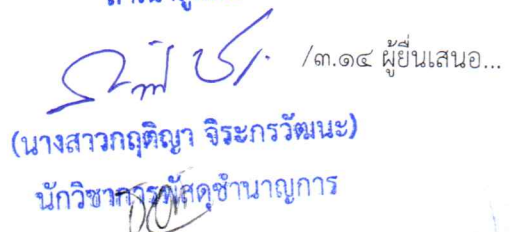 /๓.๑๔ ผู้ยื่นเสนอ...
(นางสาวกฤติญา จิระกรวัฒนะ)
นักวิชาการพัสดุชำนาญการ